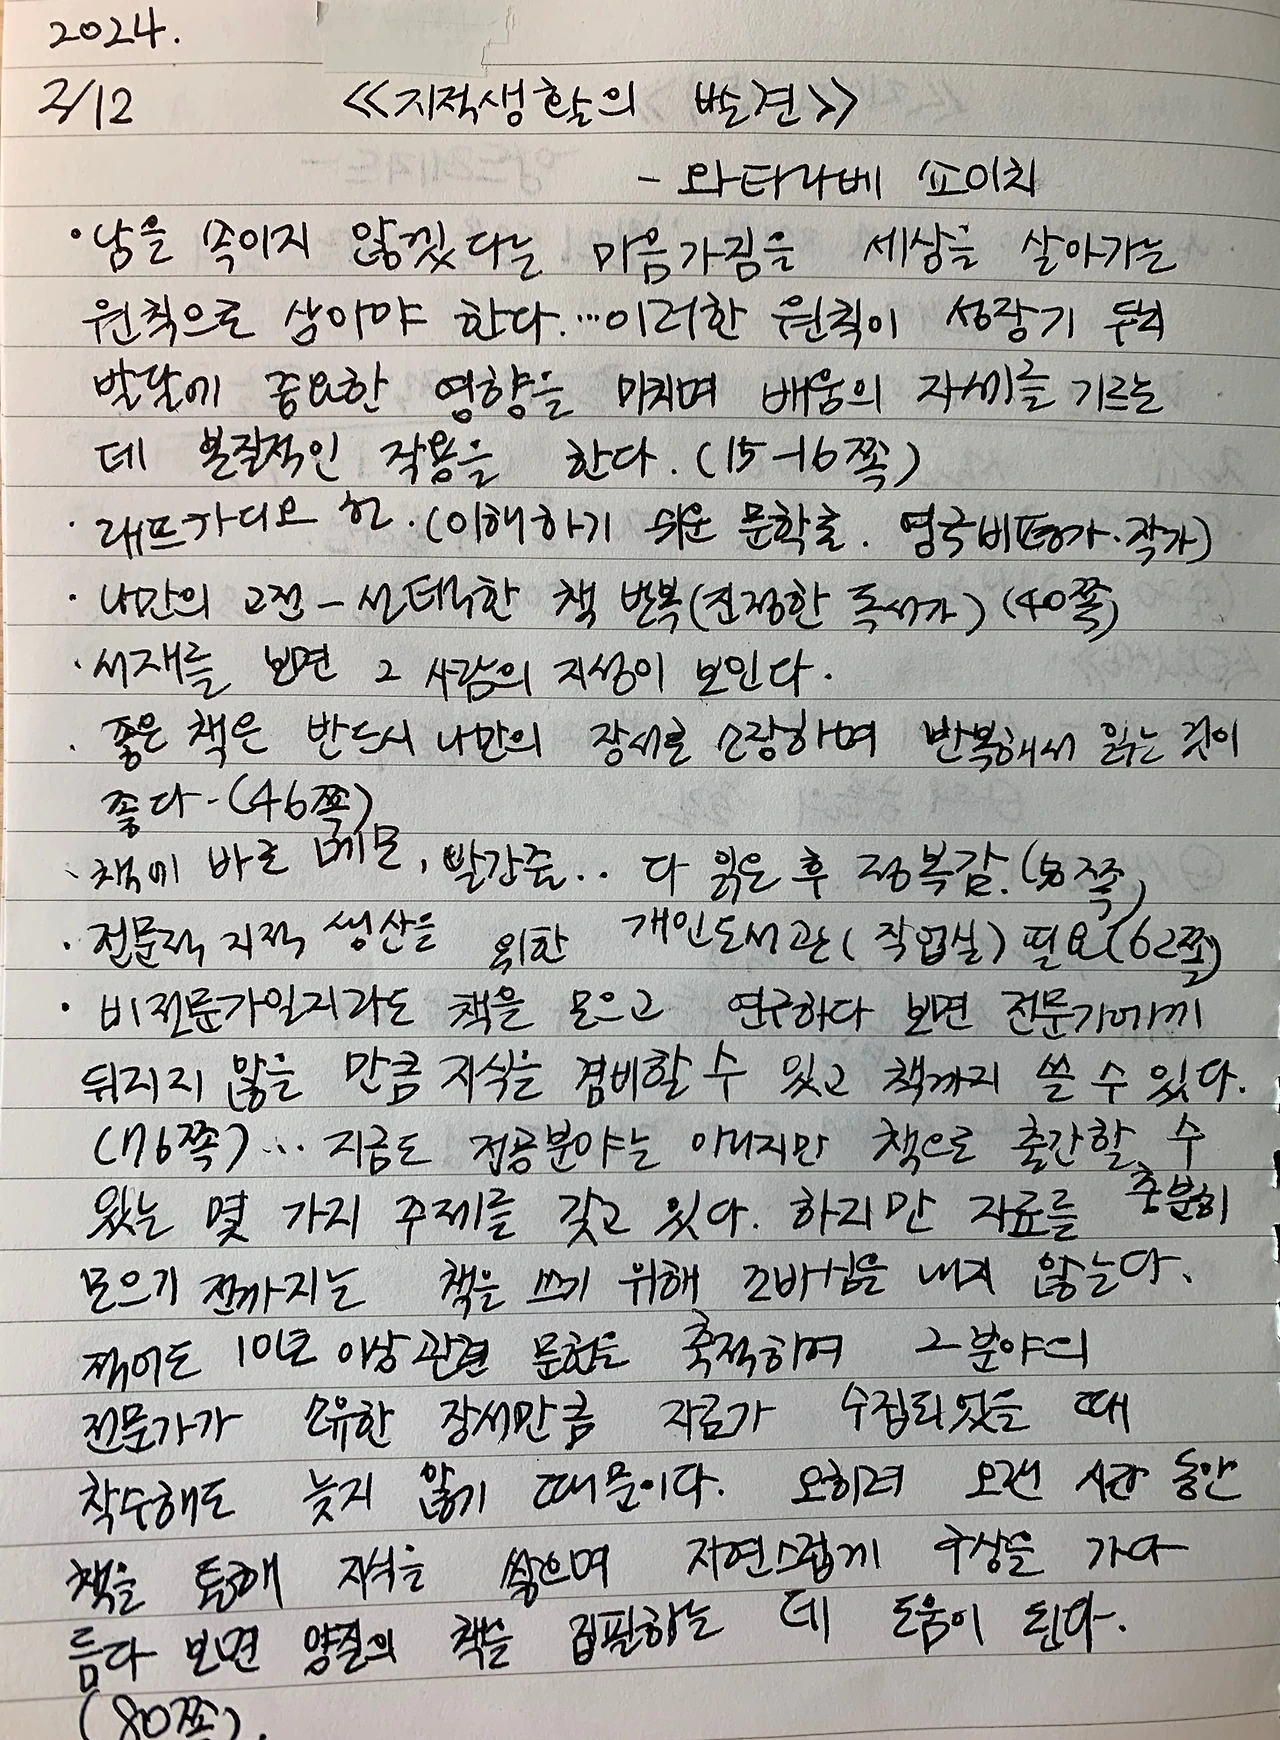 2024.
2/12 《지적생활의 발견》
- 와타나베 쇼이치
· 남을 속이지 않겠다는 마음가짐을 세상을 살아가는
원칙으로 삼아야 한다....이러한 원칙이 성장기 두뇌
발달에 중요한 영향을 미치며 배움의 자세를 기르는
데 본질적인 작용을 한다. (15-16쪽)
· 래프카디오 헌. (이해하기 쉬운 문학론. 영국비평가·작가)
· 나만의 고전 - 선택한 책 반복(진정한 독서가) (40쪽)
· 서재를 보면 그 사람의 지성이 보인다.
· 좋은 책은 반드시 나만의 장서로 소장하며 반복해서 읽는 것이
좋다. (46쪽)
· 책에 바로 메모, 빨간줄.. 다 읽은 후 정복감. 쪽)
· 전문적 지적 생산을 위한 개인도서관(작업실) 필요(62쪽)
· 비전문가일지라도 책을 모으고 연구하다 보면 전문가에게
뒤지지 않을 만큼 지식을 겸비할 수 있고 책까지 쓸 수 있다.
(76쪽)... 지금도 전공분야는 아니지만 책으로 출간할 수
있는 몇 가지 주제를 갖고 있다. 하지만 자료를 충분히
모으기 전까지는 책을 쓰기 위해 조바심을 내지 않는다.
적어도 10년 이상 관련 문헌을 축적하여 그 분야의
전문가가 소유한 장서만큼 자료가 수집되었을 때
착수해도 늦지 않기 때문이다. 오히려 오랜 시간 동안
책을 통해 지식을 쌓으며 자연스럽게 구상을 가다
듬다 보면 양질의 책을 집필하는 데 도움이 된다.
(80쪽).